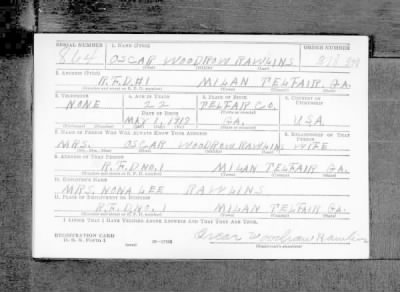 SERIAL NUMBER 1. NAME (Print) ORDER NUMBER
864 OSCAR WOODROW RAWLINS
(First) (Middle) (Last)
2. ADDRESS (Print)
R.F.D#1 MILAN TELFAIR GA.
(Number and street or R. F. D. number) (Town) (County) (State)
3. TELEPHONE 4. AGE IN YEARS 5. PLACE OF BIRTH 6. COUNTRY OF CITIZENSHIP
NONE 22 TELFAIR CO.
DATE OF BIRTH
MAY 1, GA. U.S.A
(Mo.) (Day) (Yr.) (State or country)
7. NAME OF PERSON WHO WILL ALWAYS KNOW YOUR ADDRESS 8. RELATIONSHIP OF THAT PERSON
MRS. OSCAR WOODROW RAWLINS WIFE
(Mr., Mrs., Miss) (First) (Middle) (Last)
9. ADDRESS OF THAT PERSON
R.F.D NO.1 MILAN TELFAIR GA.
(Number and street or R. F. D. number) (Town) (County) (State)
10. EMPLOYER'S NAME
MRS. NONA LEE RAWLINS
11. PLACE OF EMPLOYMENT OR BUSINESS
R.F.D NO.1 MILAN TELFAIR GA.
(Number and street or R. F. D. number) (Town) (County) (State)
I AFFIRM THAT I HAVE VERIFIED ABOVE ANSWERS AND THAT THEY ARE TRUE.
REGISTRATION CARD
D. S. S. Form 1 (over) 16-17105 Oscar Woodrow Rawlins
(Registrant's signature)